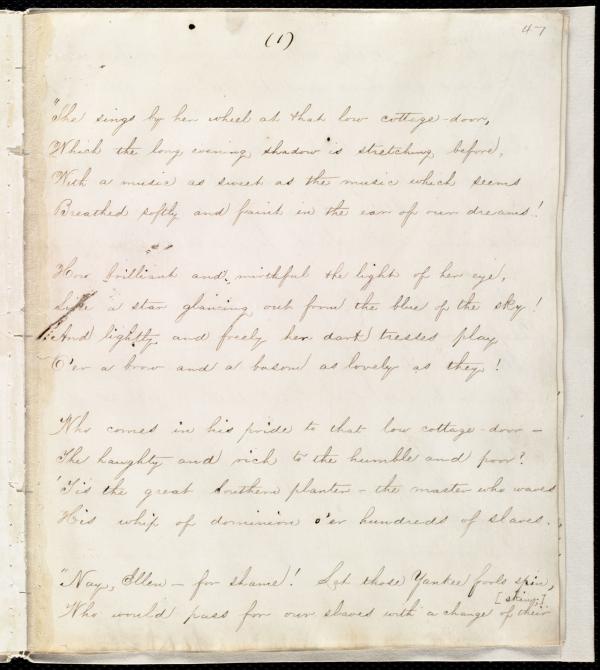 47
(1)
"She sings by her wheel at that low cottage-door,
Which the long evening shadow is stretching before,
With a music as sweet as the music which seems
Breathed softly and faint in the ear of our dreams!
How brilliant and mirthful the light of her eye,
Like a star glancing out from the blue of the sky!
And lightly and freely her dark tresses play
O'er a brow and a bosom as lovely as they!
Who comes in his pride to that low cottage-door –
The haughty and rich to the humble and poor?
'Tis the great Southern planter – the master who waves
His whip of dominion o'er hundreds of slaves.
"Nay, Ellen – for shame! Let those Yankee fools spin,
Who would pass for our slaves with a change of their
[skins;]